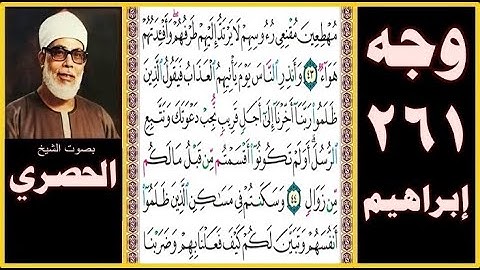 وجه
٢٦١
إبراهيم
مُهْطِعِينَ مُقْنِعِي رُءُوسِهِمْ لَا يَرْتَدُّ إِلَيْهِمْ طَرْفُهُمْ وَأَفْـِٔدَتُهُمْ
هَوَآءٌ ٤٣ وَأَنذِرِ ٱلنَّاسَ يَوْمَ يَأْتِيهِمُ ٱلْعَذَابُ فَيَقُولُ ٱلَّذِينَ
ظَلَمُوا۟ رَبَّنَآ أَخِّرْنَآ إِلَىٰٓ أَجَلٍ قَرِيبٍ نُّجِبْ دَعْوَتَكَ وَنَتَّبِعِ
ٱلرُّسُلَ أَوَلَمْ تَكُونُوٓا۟ أَقْسَمْتُم مِّن قَبْلُ مَا لَكُم
مِّن زَوَالٍ ٤٤ وَسَكَنتُمْ فِي مَسَٰكِنِ ٱلَّذِينَ ظَلَمُوٓا۟
أَنفُسَهُمْ وَتَبَيَّنَ لَكُمْ كَيْفَ فَعَلْنَا بِهِمْ وَضَرَبْنَا
بصوت الشيخ
الحصري